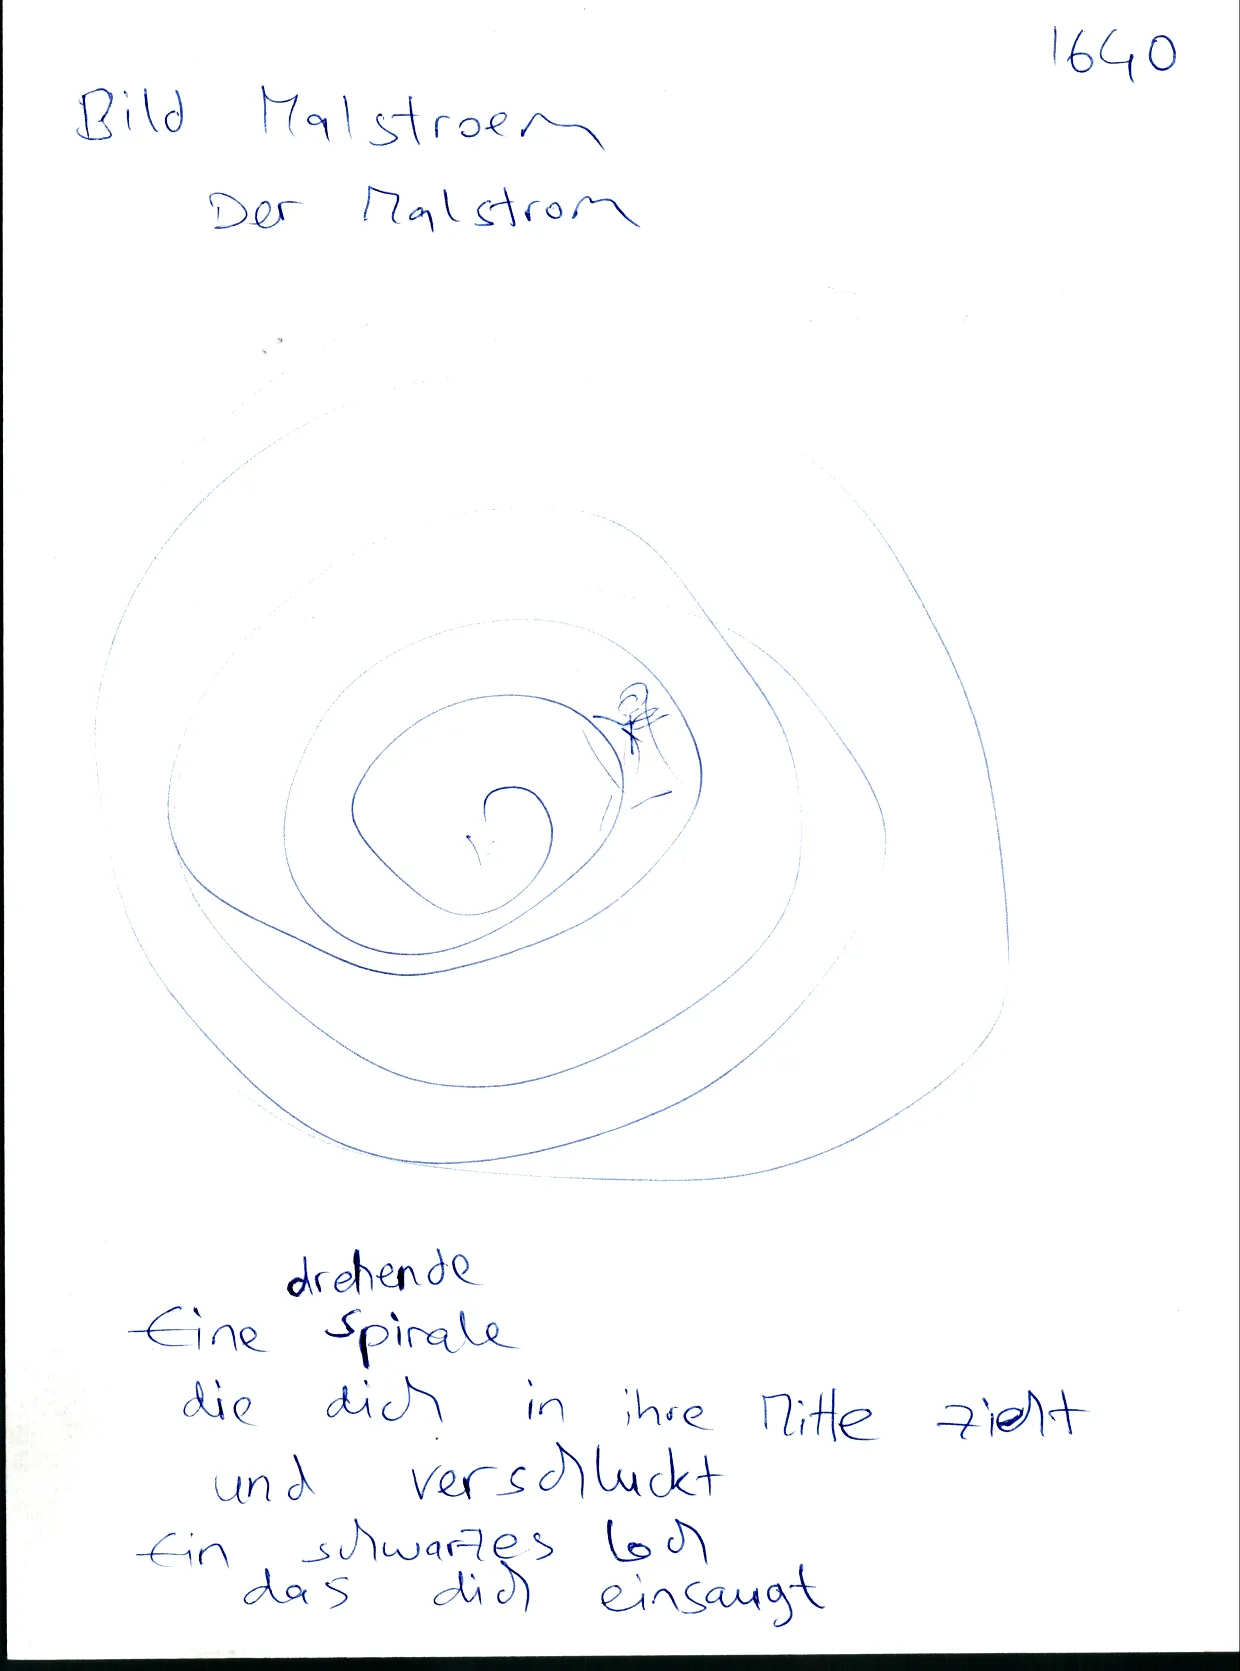 1640
Bild Malstroem
Der Malstrom
drehende
Eine Spirale
die dich in ihre Mitte zieht
und verschluckt
Ein schwarzes Loch
das dich einsaugt